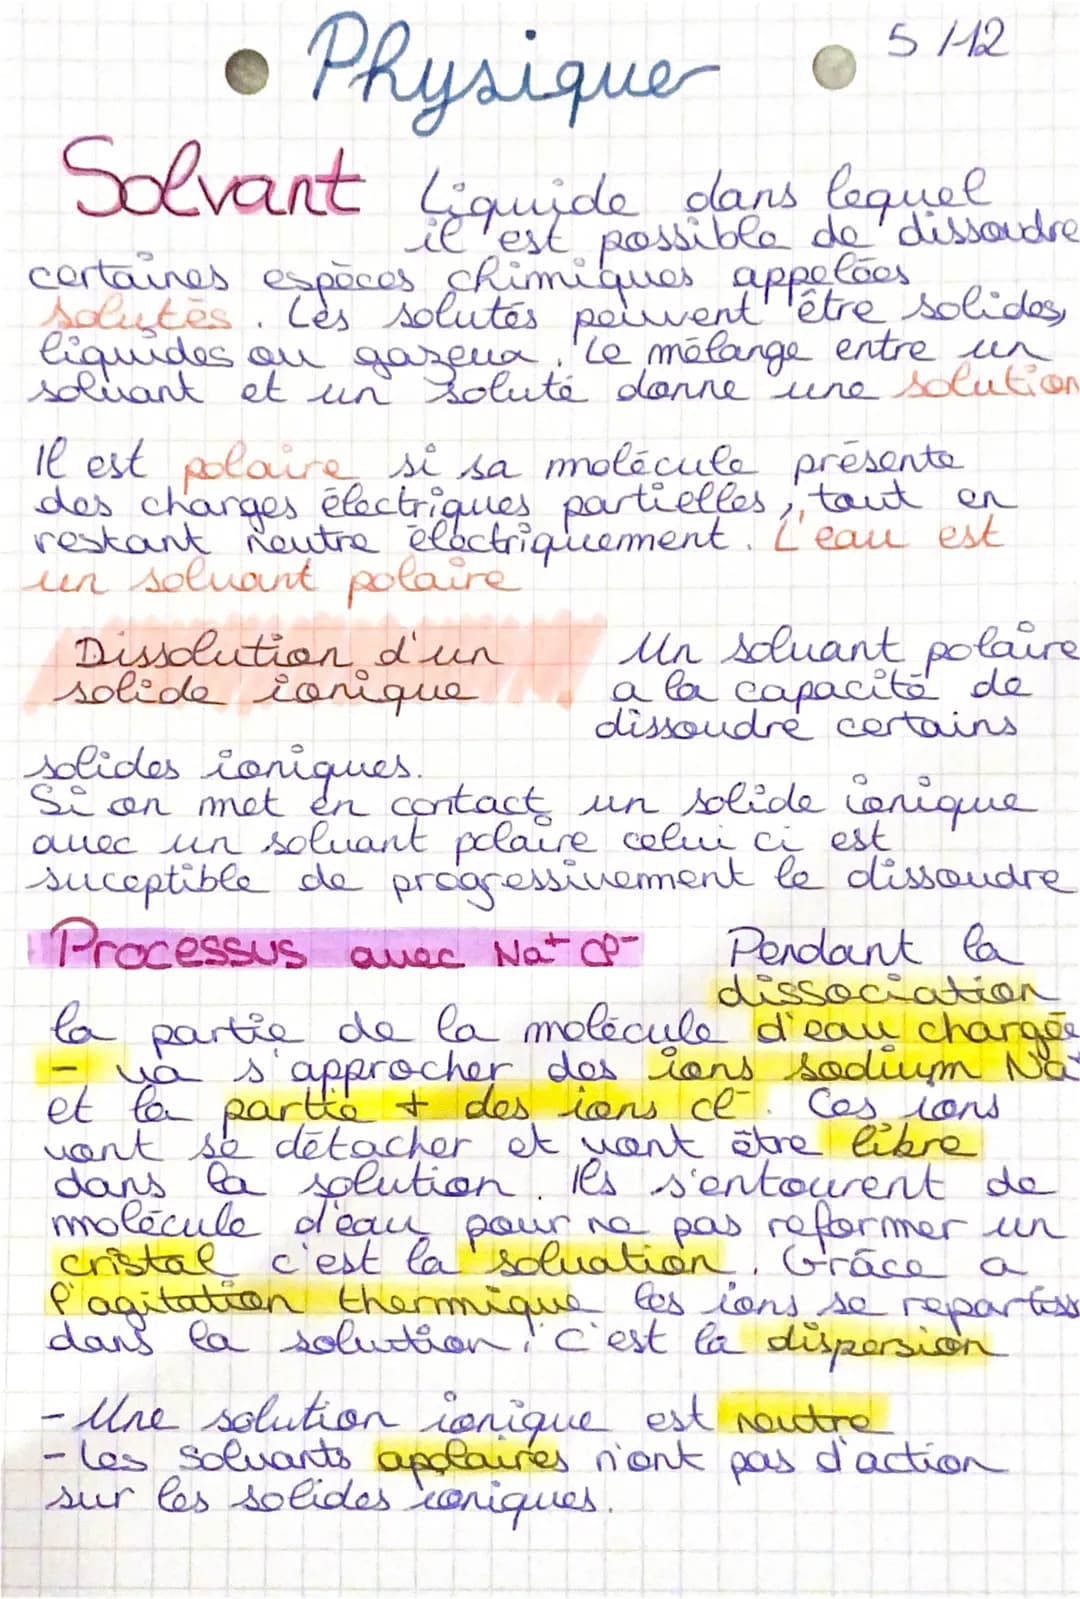 Physique 5/12
Solvant Liquide dans lequel
il est possible de dissoudre
certaines espèces chimiques appelées
solutés. Les solutés peuvent être solides,
liquides ou gazeux. Le mélange entre un
solvant et un soluté donne une solution
Il est polaire si sa molécule présente
des charges électriques partielles, tout en
restant neutre électriquement. L'eau est
un solvant polaire
Dissolution d'un
solide ionique
Un solvant polaire
a la capacité de
dissoudre certains
solides ioniques.
Si on met en contact un solide ionique
avec un solvant polaire celui ci est
suceptible de progressivement le dissoudre
Processus avec Na+ Cl- Pendant la
dissociation
la partie de la molécule d'eau chargée
- va s'approcher des ions sodium Na+
et la partie + des ions cl-. Ces ions
vont se détacher et vont être libre
dans la solution. Ils s'entourent de
molécule d'eau pour ne pas reformer un
cristal c'est la solvation. Grâce a
l'agitation thermique les ions se repartiss
dans la solution, c'est la dispersion
- Une solution ionique est neutre
- Les solvants apolaires n'ont pas d'action
sur les solides ioniques.